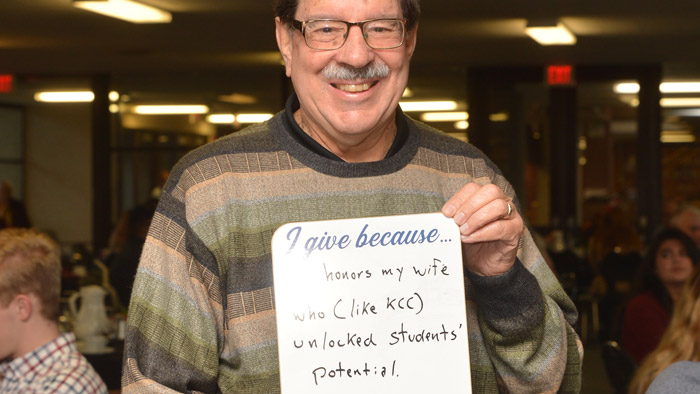 EXIT
I give because...
honors my wife
who (like KCC)
unlocked students'
potential.